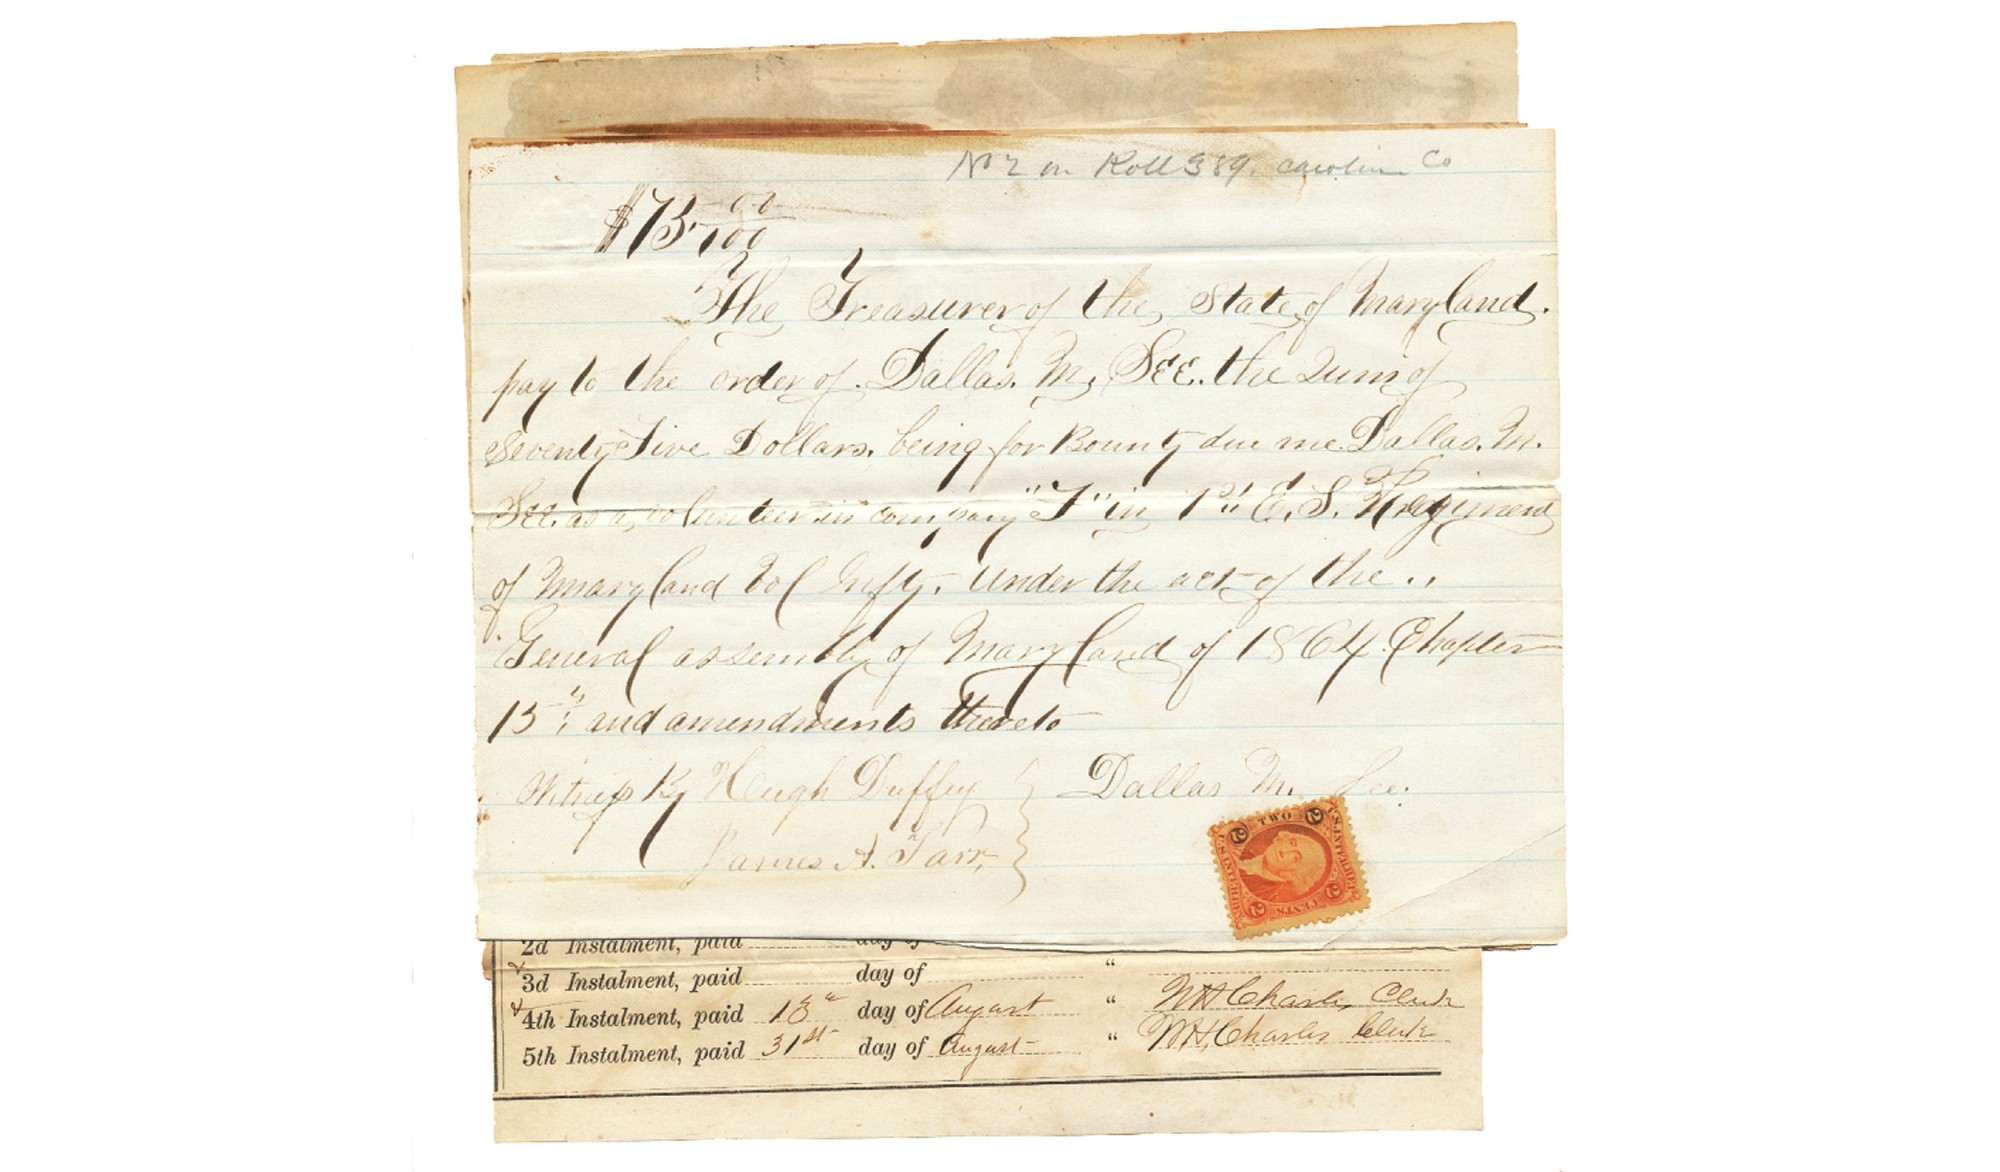 No 2 on Roll 389. Carolin Co
$75.00/100
The Treasurer of the State of Maryland.
pay to the order of Dallas. M. See. the Sum of
Seventy Five Dollars. being for Bounty due me Dallas. M.
See. as a volunteer in company "F" in 1st E. S. Regiment
of Maryland Vol Infty. under the act of the ..
General assembly of Maryland of 1864. Chapter
15th and amendments thereto
Witness By Hugh Duffey } Dallas M. See.
James A. Tarr,
U.S. INTER. REV.
2 TWO 2
2 CENTS 2
2d Instalment, paid day of
3d Instalment, paid day of "
4th Instalment, paid 18th day of August " WH Charles Clerk
5th Instalment, paid 31st day of August " WH. Charles Clerk